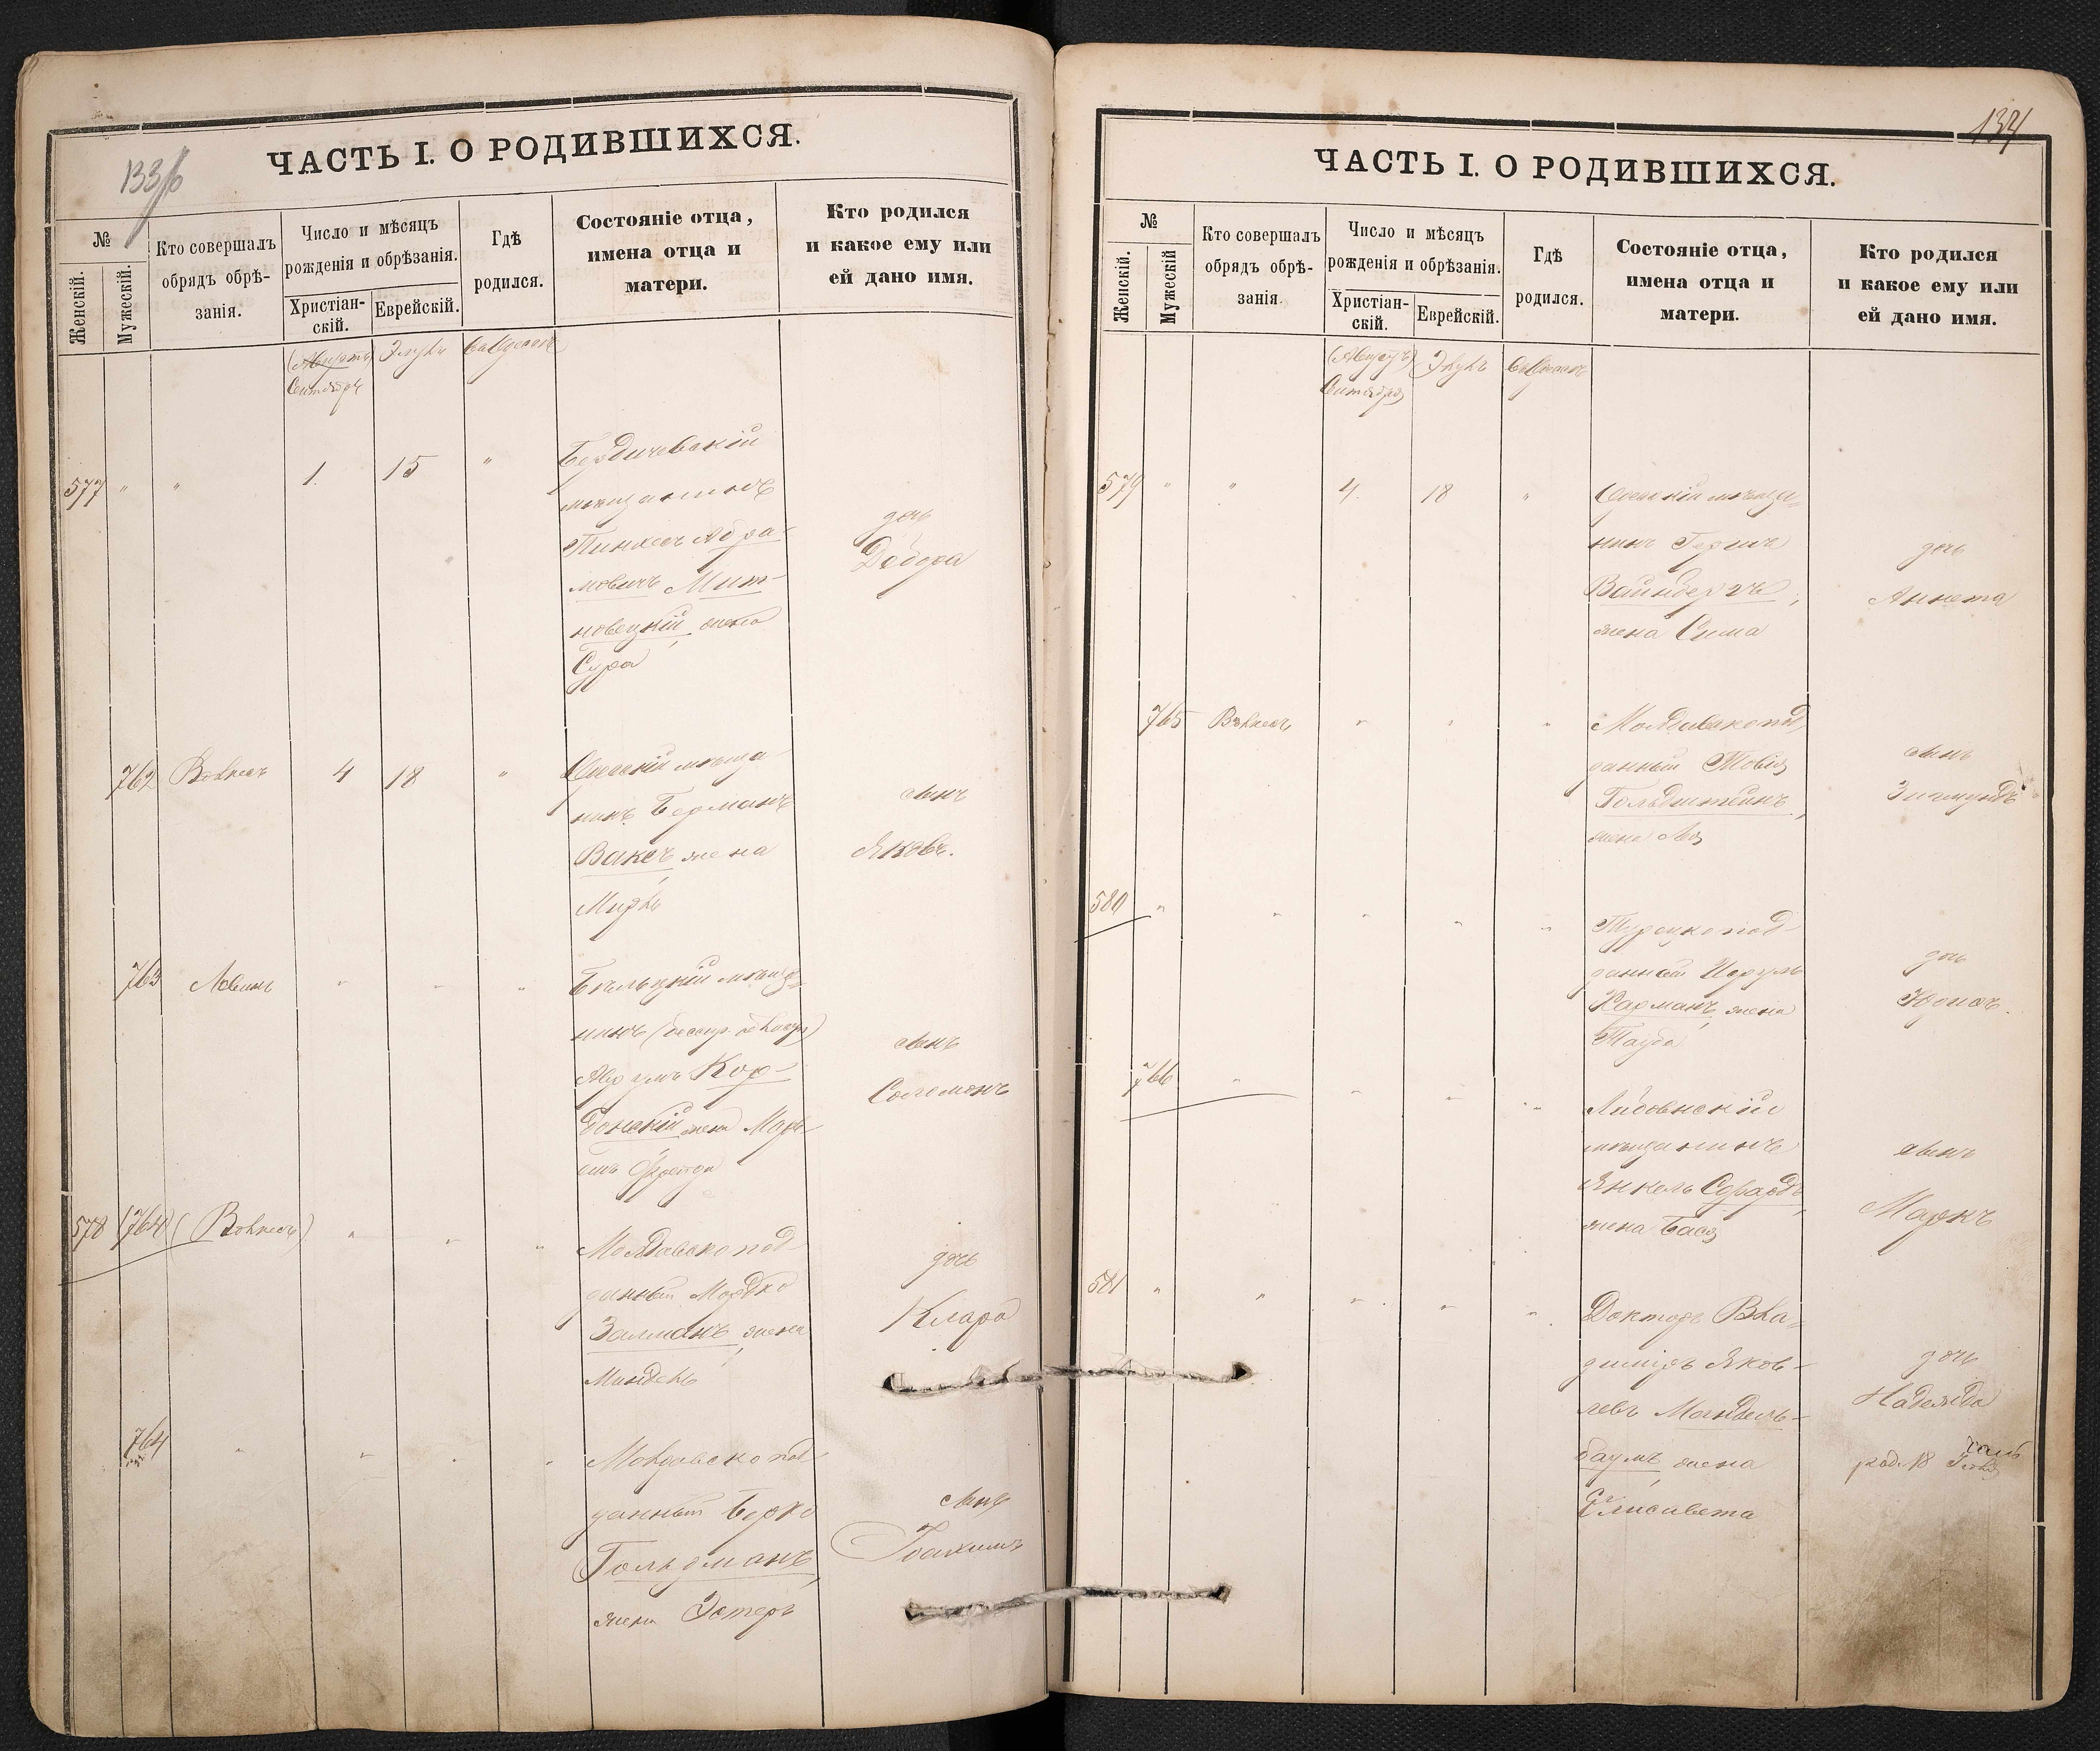 133/б
ЧАСТЬ I. О РОДИВШИХСЯ.
№
Женскій.
Мужескій.
Кто совершалъ
обрядъ обрѣ-
занія.
Число и мѣсяцъ
рожденія и обрѣзанія.
Христіан-
скій.
Еврейскій.
Гдѣ
родился.
Состояніе отца,
имена отца и
матери.
Кто родился
и какое ему или
ей дано имя.
(Августъ)
Сентябрь
Элулъ
въ Одессѣ
577 " " 1. 15 "
Бердичевскій
мѣщанинъ
Пинхасъ Абра-
мовичъ Мит-
новецкій, жена
Сура
дочь
Дебора
762 Вельнесъ 4 18 "
Одесскій мѣща-
нинъ Берманъ
Ваксъ, жена
Миркъ
сынъ
Яковъ.
763 Левинъ " " "
Бѣльцкій мѣща-
нинъ
Аврумъ Кор-
донскій, жена Марь-
емъ Фрейда
сынъ
Соломонъ
578 (764) " " "
Молдавскопод-
данный Мордко
Залманъ, жена
Миндель
дочь
Клара
764 " " " "
Молдавскопод-
данный Берко
Гольдманъ,
жена Эстеръ
сынъ
Іоахимъ
134
ЧАСТЬ I. О РОДИВШИХСЯ.
№
Женскій.
Мужескій
Кто совершалъ
обрядъ обрѣ-
занія.
Число и мѣсяцъ
рожденія и обрѣзанія.
Христіан-
скій.
Еврейскій.
Гдѣ
родился.
Состояніе отца,
имена отца и
матери.
Кто родился
и какое ему или
ей дано имя.
(Августъ)
Сентябрь
Элулъ
въ Одессѣ
579 " " 4. 18 "
Одесскій мѣща-
нинъ Гершъ
Вайнбергъ,
жена Сима
дочь
Аннета
765 Вельнесъ " " "
Молдавскопод-
данный Товія
Гольдштейнъ,
жена Лея
сынъ
Зигмундъ
580 " " " " "
Турецкопод-
данный Исрулъ
Харманъ, жена
Тауба
дочь
766 " " " "
мѣщанинъ
Янкель Сфардъ,
жена Бася
сынъ
Маркъ
581 " " " " "
Докторъ Вла-
диміръ Яков-
левъ Мандель-
баумъ, жена
Елисавета
дочь
Надежда
род. 18